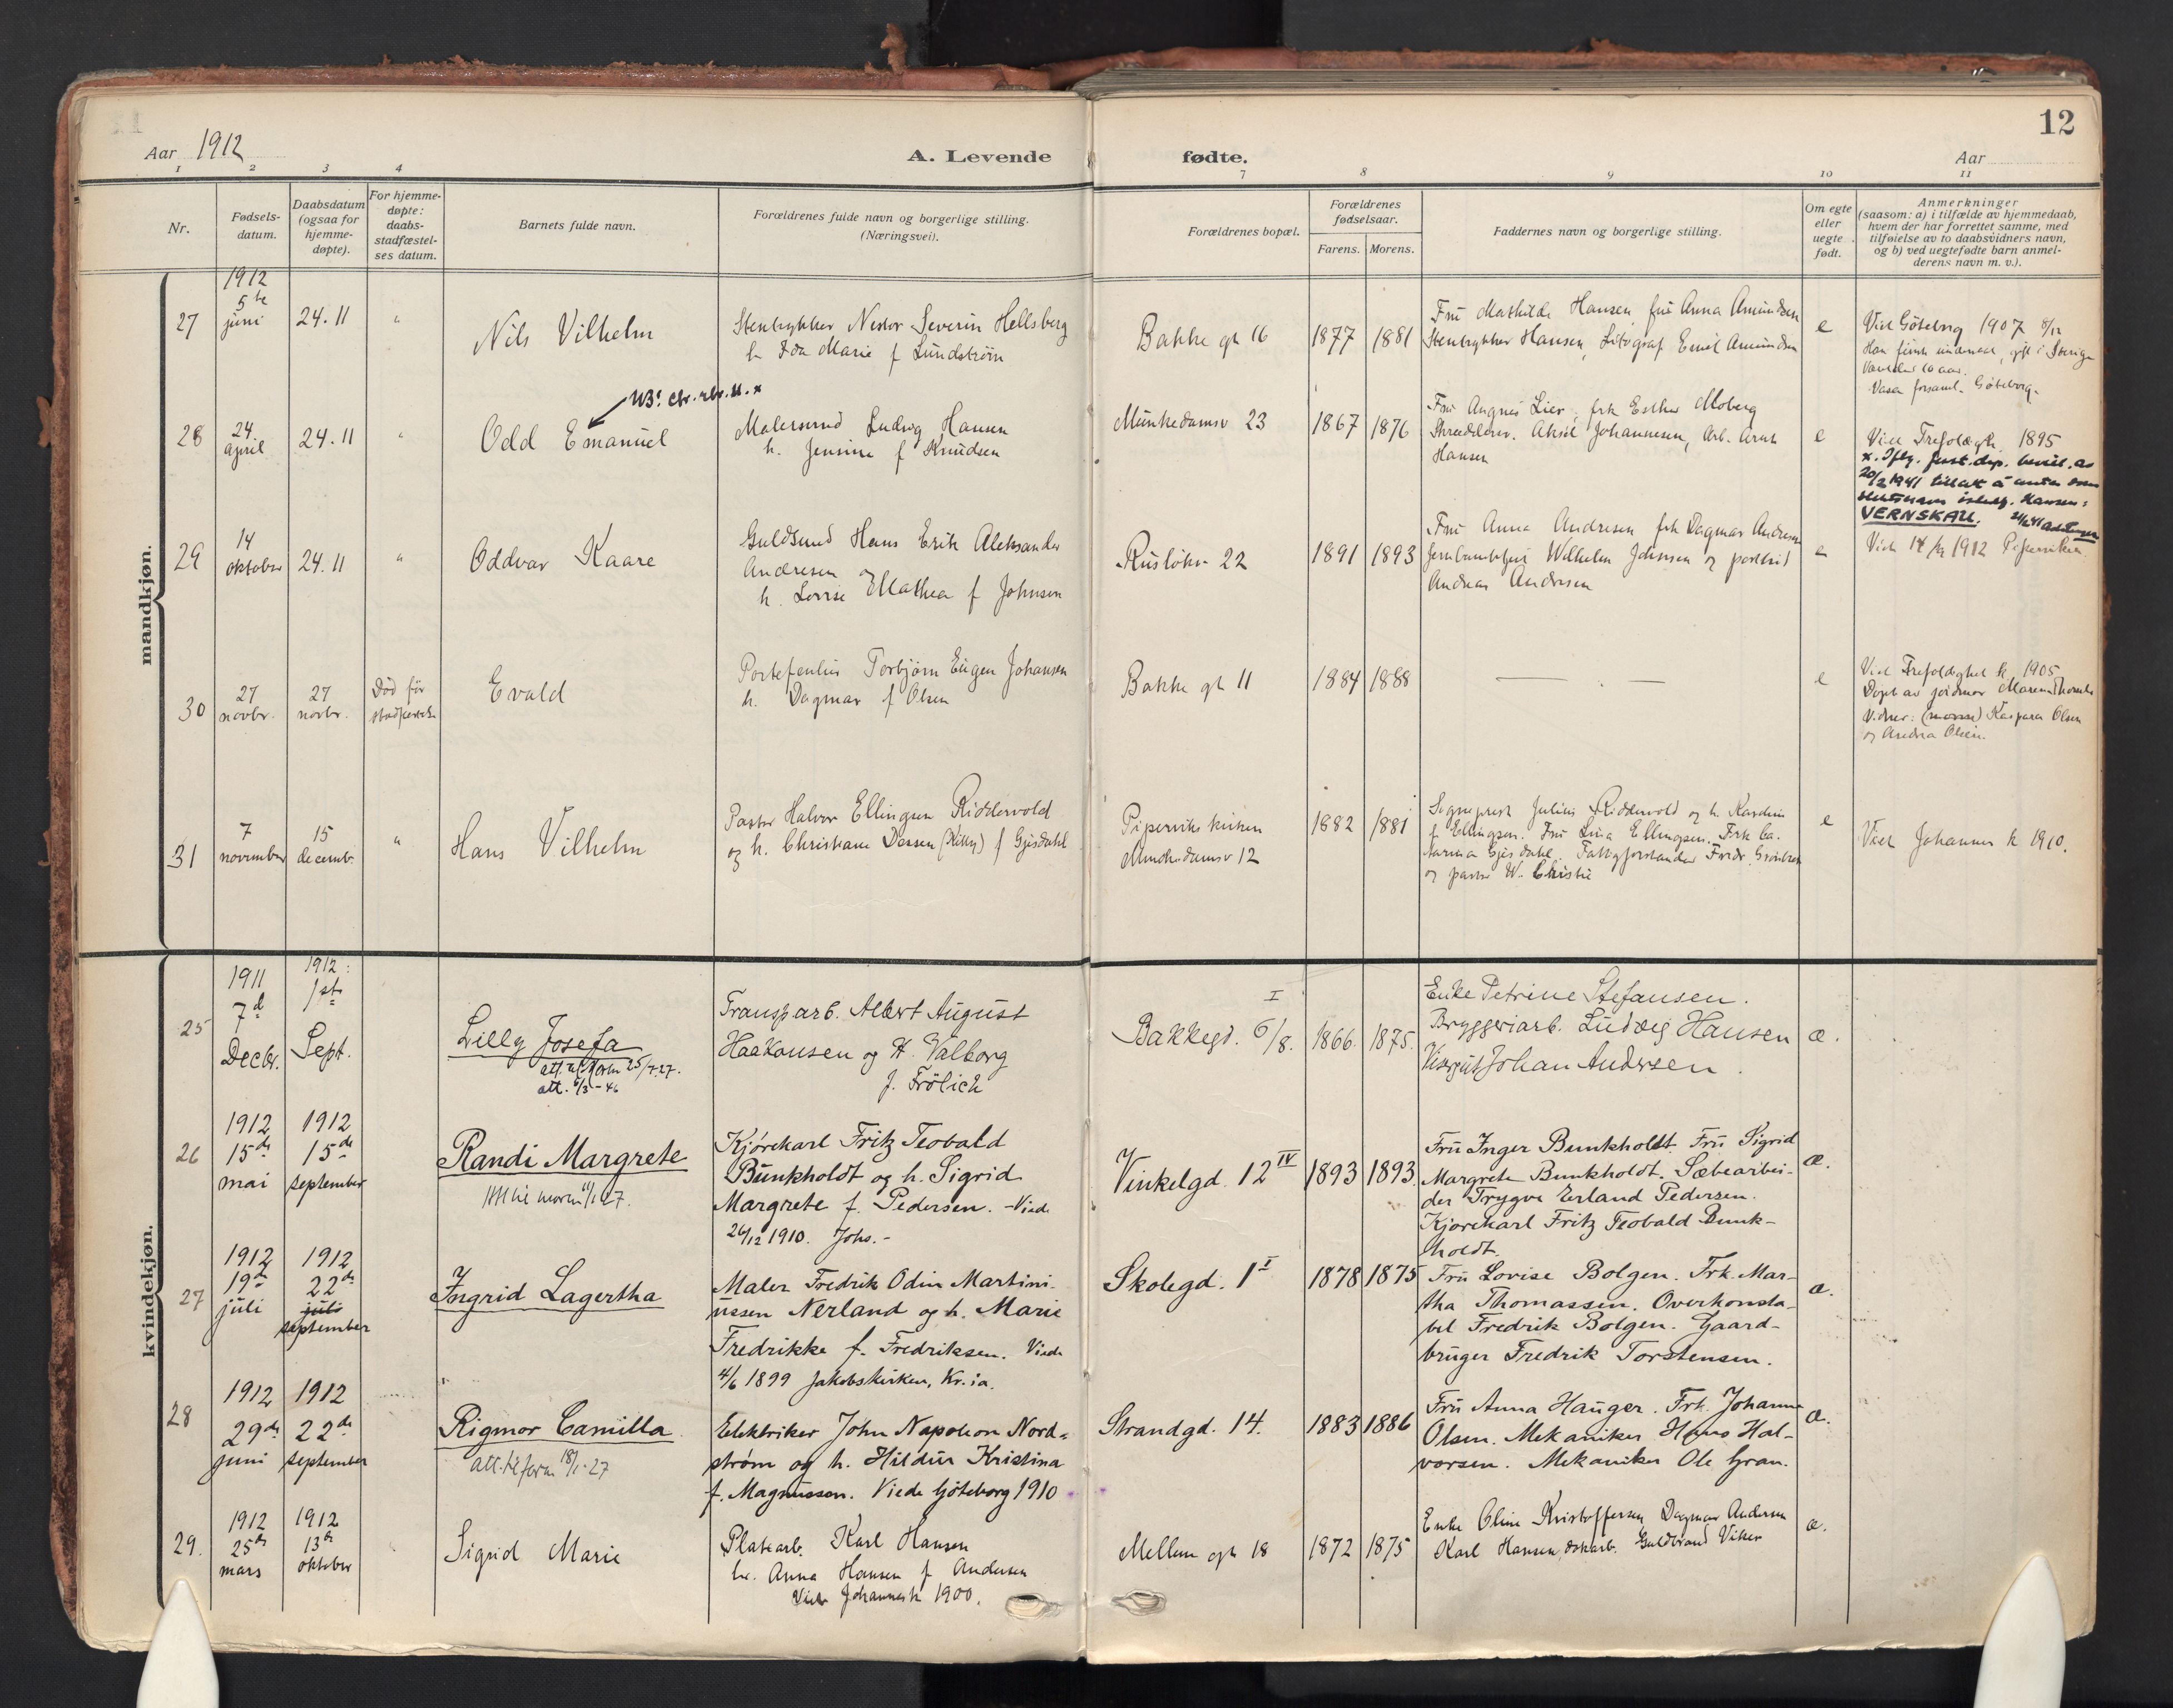 12
Aar 1912
A. Levende
fødte.
Aar
1
2
3
4
7
8
9
10
11
Nr.
Fødsels-
datum.
Daabsdatum
(ogsaa for
hjemme-
døpte).
For hjemme-
døpte:
daabs-
stadfæstel-
ses datum.
Barnets fulde navn.
Forældrenes fulde navn og borgerlige stilling.
(Næringsvei).
Forældrenes bopæl.
Forældrenes
fødselsaar.
Farens.
Morens.
Faddernes navn og borgerlige stilling.
Om egte
eller
uegte
født.
Anmerkninger
(saasom: a) i tilfælde av hjemmedaab,
hvem der har forrettet samme, med
tilføielse av to daabsvidners navn,
og b) ved uegtefødte barn anmel-
derens navn m. v.).
mandkjøn.
27
1912
5te
juni
24.11
"
Nils Vilhelm
Stentrykker Nestor Severin Hellsberg
h. Ida Marie f Lundstrøm
Bakke gt 16
1877
1881
Fru Mathilde Hansen, fru Anna Amundsen
Stentrykker Hansen, Litograf Emil Amundsen
e
Viet Göteborg 1907 8/12
Vasa forsaml. Göteborg.
28
24
april
24.11
"
Odd Emanuel
Malersvend Ludvig Hansen
h. Jensine f Knudsen
Munkedamsv 23
1867
1876
Fru Augnes Lier, frk Esther Moberg
Skrædderv. Aksel Johannesen, Arb. Arnt
Hansen
e
Viet Trefoldigh. 1895
x. Iflg. just.dep. bevil. av
20/2 1941 tillatt å anta som
slektsnavn istedf. Hansen:
VERNSKAU.
29
14
oktober
24.11
"
Oddvar Kaare
Guldsmed Hans Erik Aleksander
Andresen og
h. Lovise Mathea f Johnsen
Rusløkv 22
1891
1893
Fru Anna Andresen frk Dagmar Andresen
Wilhelm Johnsen og postbud
Andreas Andresen
e
Viet 14/9 1912 Piperviken
30
27
novbr.
27
novbr.
Død før
Evald
Torbjørn Eugen Johansen
h. Dagmar f Olsen
Bakke gt 11
1884
1888
— —
e
Viet Trefoldighet k. 1905
Døpt av jordmor
Vidner: Kaspara Olsen
og Andrea Olsen.
31
7
november
15
decemb.
"
Hans Vilhelm
Pastor Halvor Ellingsen Riddervold
og h. Christiane Dessen (Kitty) f Gjesdahl
Piperviks kirken
Munkedamsv 12
1882
1881
Sogneprest Julius Riddervold og h. Karoline
f. Ellingsen. Fru Lina Ellingsen. Frk Ca.
Gjesdahl. Fattigforstander Fredr.
og pastor W. Christie
e
Viet Johannes k 1910.
kvindekjøn.
25
1911
7d
Decbr.
1912:
1ste
Sept.
Lilly Josefa
att. til konf. 25/7.27.
att. 6/3-46
Transp.arb. Albert August
Haakonsen og H. Valborg
f. Frölich
Bakkegd. 6/8. I
1866.
1875.
Enke Petrine Stefansen.
Bryggeriarb. Ludvig Hansen
Visergut Johan Andersen.
æ.
26
1912
15de
mai
1912
15de
september
Randi Margrete
Kjørekarl Fritz Teobald
Bunkholdt og h. Sigrid
Margrete f. Pedersen. - Viede
26/12 1910. Johs.-
Vinkelgd. 12 IV
1893
1893.
Fru Inger Bunkholdt. Fru Sigrid
Margrete Bunkholdt. Sæbearbei-
der Trygve Erland Pedersen.
Kjørekarl Fritz Teobald Bunk-
holdt.
æ.
27
1912
19de
juli
1912
22de
juli
september
Ingrid Lagertha
Maler Fredrik Odin Martini-
ussen Nerland og h. Marie
Fredrikke f. Fredriksen. Viede
4/6 1899 Jakobskirken, Kr.ia.
Skolegd. 1 I
1878
1875
Fru Lovise Bolgen. Frk. Mar-
tha Thomassen. Overkonsta-
bel Fredrik Bolgen. Gaard-
bruger Fredrik Torstensen.
æ.
28
1912
29de
juni
1912
22de
september
Rigmor Camilla
att. til form 18/1-27
Elektriker John Napoleon Nord-
strøm og h. Hildur Kristina
f. Magnusson. Viede Göteborg 1910
Strandgd. 14.
1883
1886
Fru Anna Hauger. Frk. Johanne
Olsen. Mekaniker Hans Hal-
vorsen. Mekaniker Ole Gran.
æ.
29.
1912
25de
mars
1912
13de
oktober
Sigrid Marie
Platearb. Karl Hansen
h. Anna Hansen f Andersen
Viede Johannesk 1900.
Mellem gt 18
1872
1875
Enke Oline Kristoffersen Dagmar Andersen
Karl Hansen, Guldbrand Viker
æ.